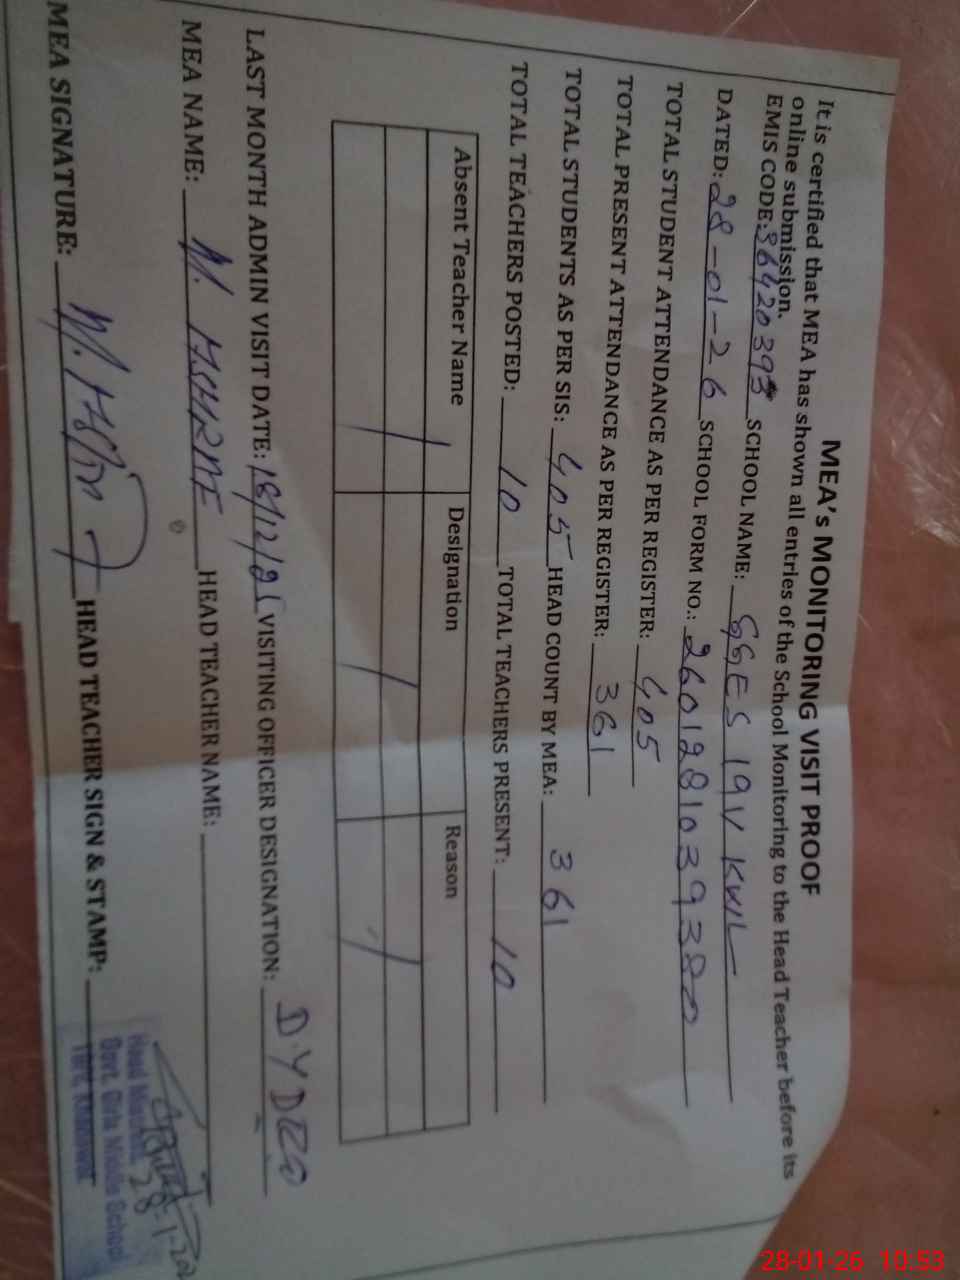 MEA's MONITORING VISIT PROOF
It is certified that MEA has shown all entries of the School Monitoring to the Head Teacher before its
online submission.
EMIS CODE: 36420393 SCHOOL NAME: GGES 19V KWL
DATED: 28-01-26 SCHOOL FORM NO.: 2601281039380
TOTAL STUDENT ATTENDANCE AS PER REGISTER: 405
TOTAL PRESENT ATTENDANCE AS PER REGISTER: 361
TOTAL STUDENTS AS PER SIS: 405 HEAD COUNT BY MEA: 361
TOTAL TEACHERS POSTED: 10 TOTAL TEACHERS PRESENT: 10
Absent Teacher Name Designation Reason
LAST MONTH ADMIN VISIT DATE: 18/12/2 VISITING OFFICER DESIGNATION: D.Y DEO
MEA NAME: M. HEAD TEACHER NAME:
MEA SIGNATURE: M. HEAD TEACHER SIGN & STAMP:
28-1-20
Head
Govt. Girls Middle School
28-01-26 10:53